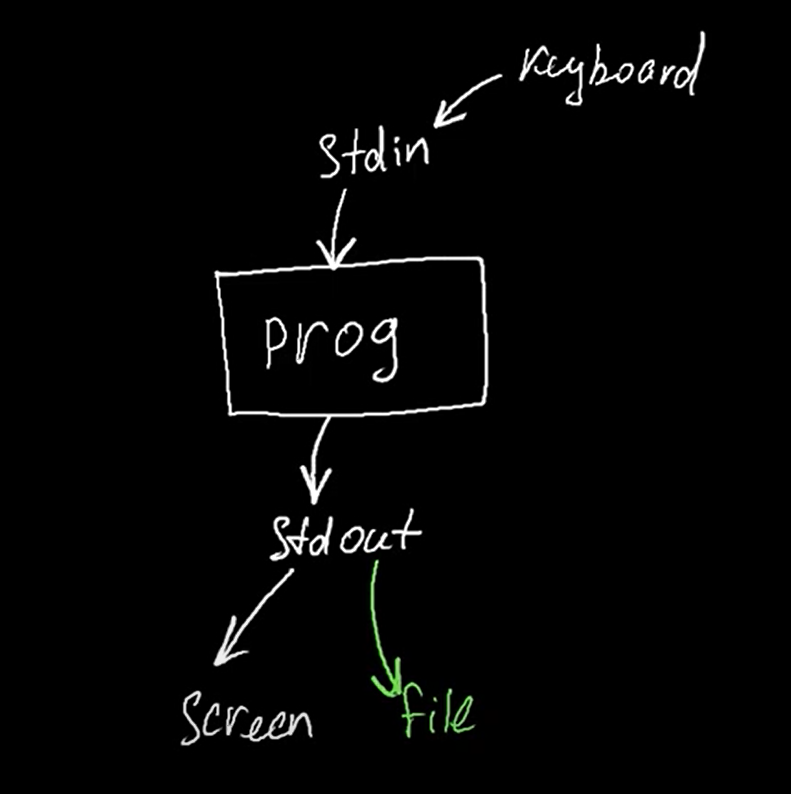 Keyboard
Stdin
prog
Stdout
Screen
file